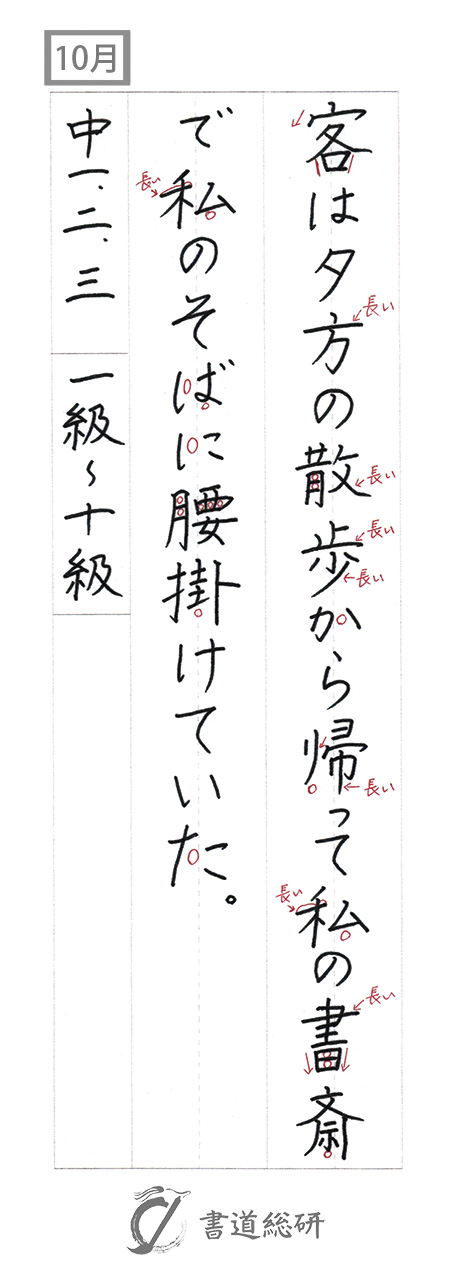 10月
客は夕方の散歩から帰って私の書斎
で私のそばに腰掛けていた。
中一、二、三 一級〜十級
長い
長い
長い
長い
長い
長い
長い
長い
書道総研